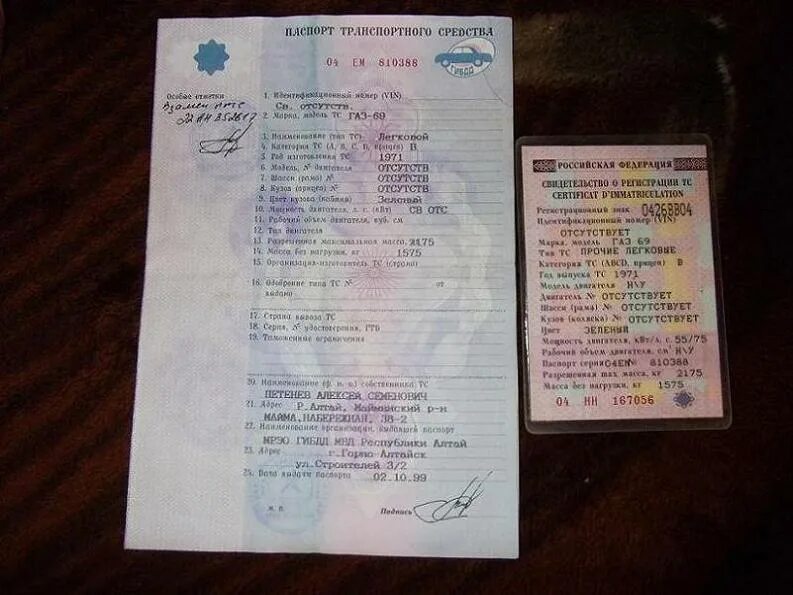 ПАСПОРТ ТРАНСПОРТНОГО СРЕДСТВА
04 ЕМ 810388
ГИБДД
Особые отметки
Взамен
1. Идентификационный номер (VIN)
Св. отсутств.
2. Марка, модель ТС ГАЗ-69
3. Наименование (тип ТС) Легковой
4. Категория ТС (А, В, С, D, прицеп) В
5. Год изготовления ТС 1971
6. Модель, № двигателя ОТСУТСТВ
7. Шасси (рама) № ОТСУТСТВ
8. Кузов (прицеп) № ОТСУТСТВ
9. Цвет кузова (кабины) Зеленый
10. Мощность двигателя, л. с. (кВт) СВ ОТС
11. Рабочий объем двигателя, куб. см
12. Тип двигателя
13. Разрешенная максимальная масса, 2175
14. Масса без нагрузки, кг 1575
15. Организация-изготовитель ТС (страна)
16. Одобрение типа ТС № от
выдано
17. Страна вывоза ТС
18. Серия, №
19. Таможенные ограничения
20. Наименование (ф. и. о.) собственника ТС
ПЕТЕНЕВ АЛЕКСЕЙ СЕМЕНОВИЧ
21. Адрес Р.Алтай, Майминский р-н
МАЙМА, НАБЕРЕЖНАЯ, 38-2
22. Наименование организации, выдавшей паспорт
МРЭО ГИБДД МВД Республики Алтай
23. Адрес г.Горно-Алтайск
ул.Строителей 3/2
25. Дата выдачи паспорта 02.10.99
М. П.
Подпись
РОССИЙСКАЯ ФЕДЕРАЦИЯ
СВИДЕТЕЛЬСТВО О РЕГИСТРАЦИИ ТС
CERTIFICAT D'IMMATRICULATION
Регистрационный знак 0426ВВ04
Идентификационный номер (VIN)
ОТСУТСТВУЕТ
Марка, модель ГАЗ 69
Тип ТС ПРОЧИЕ ЛЕГКОВЫЕ
Категория ТС (ABCD, прицеп) В
Год выпуска ТС 1971
Модель двигателя Н\У
Двигатель № ОТСУТСТВУЕТ
Шасси (рама) № ОТСУТСТВУЕТ
Кузов (коляска) № ОТСУТСТВУЕТ
Цвет ЗЕЛЕНЫЙ
Мощность двигателя, кВт/л. с. 55/75
Рабочий объем двигателя, см³ Н\У
Паспорт серия 04ЕМ № 810388
Разрешенная max масса, кг 2175
Масса без нагрузки, кг 1575
04 НН 167056